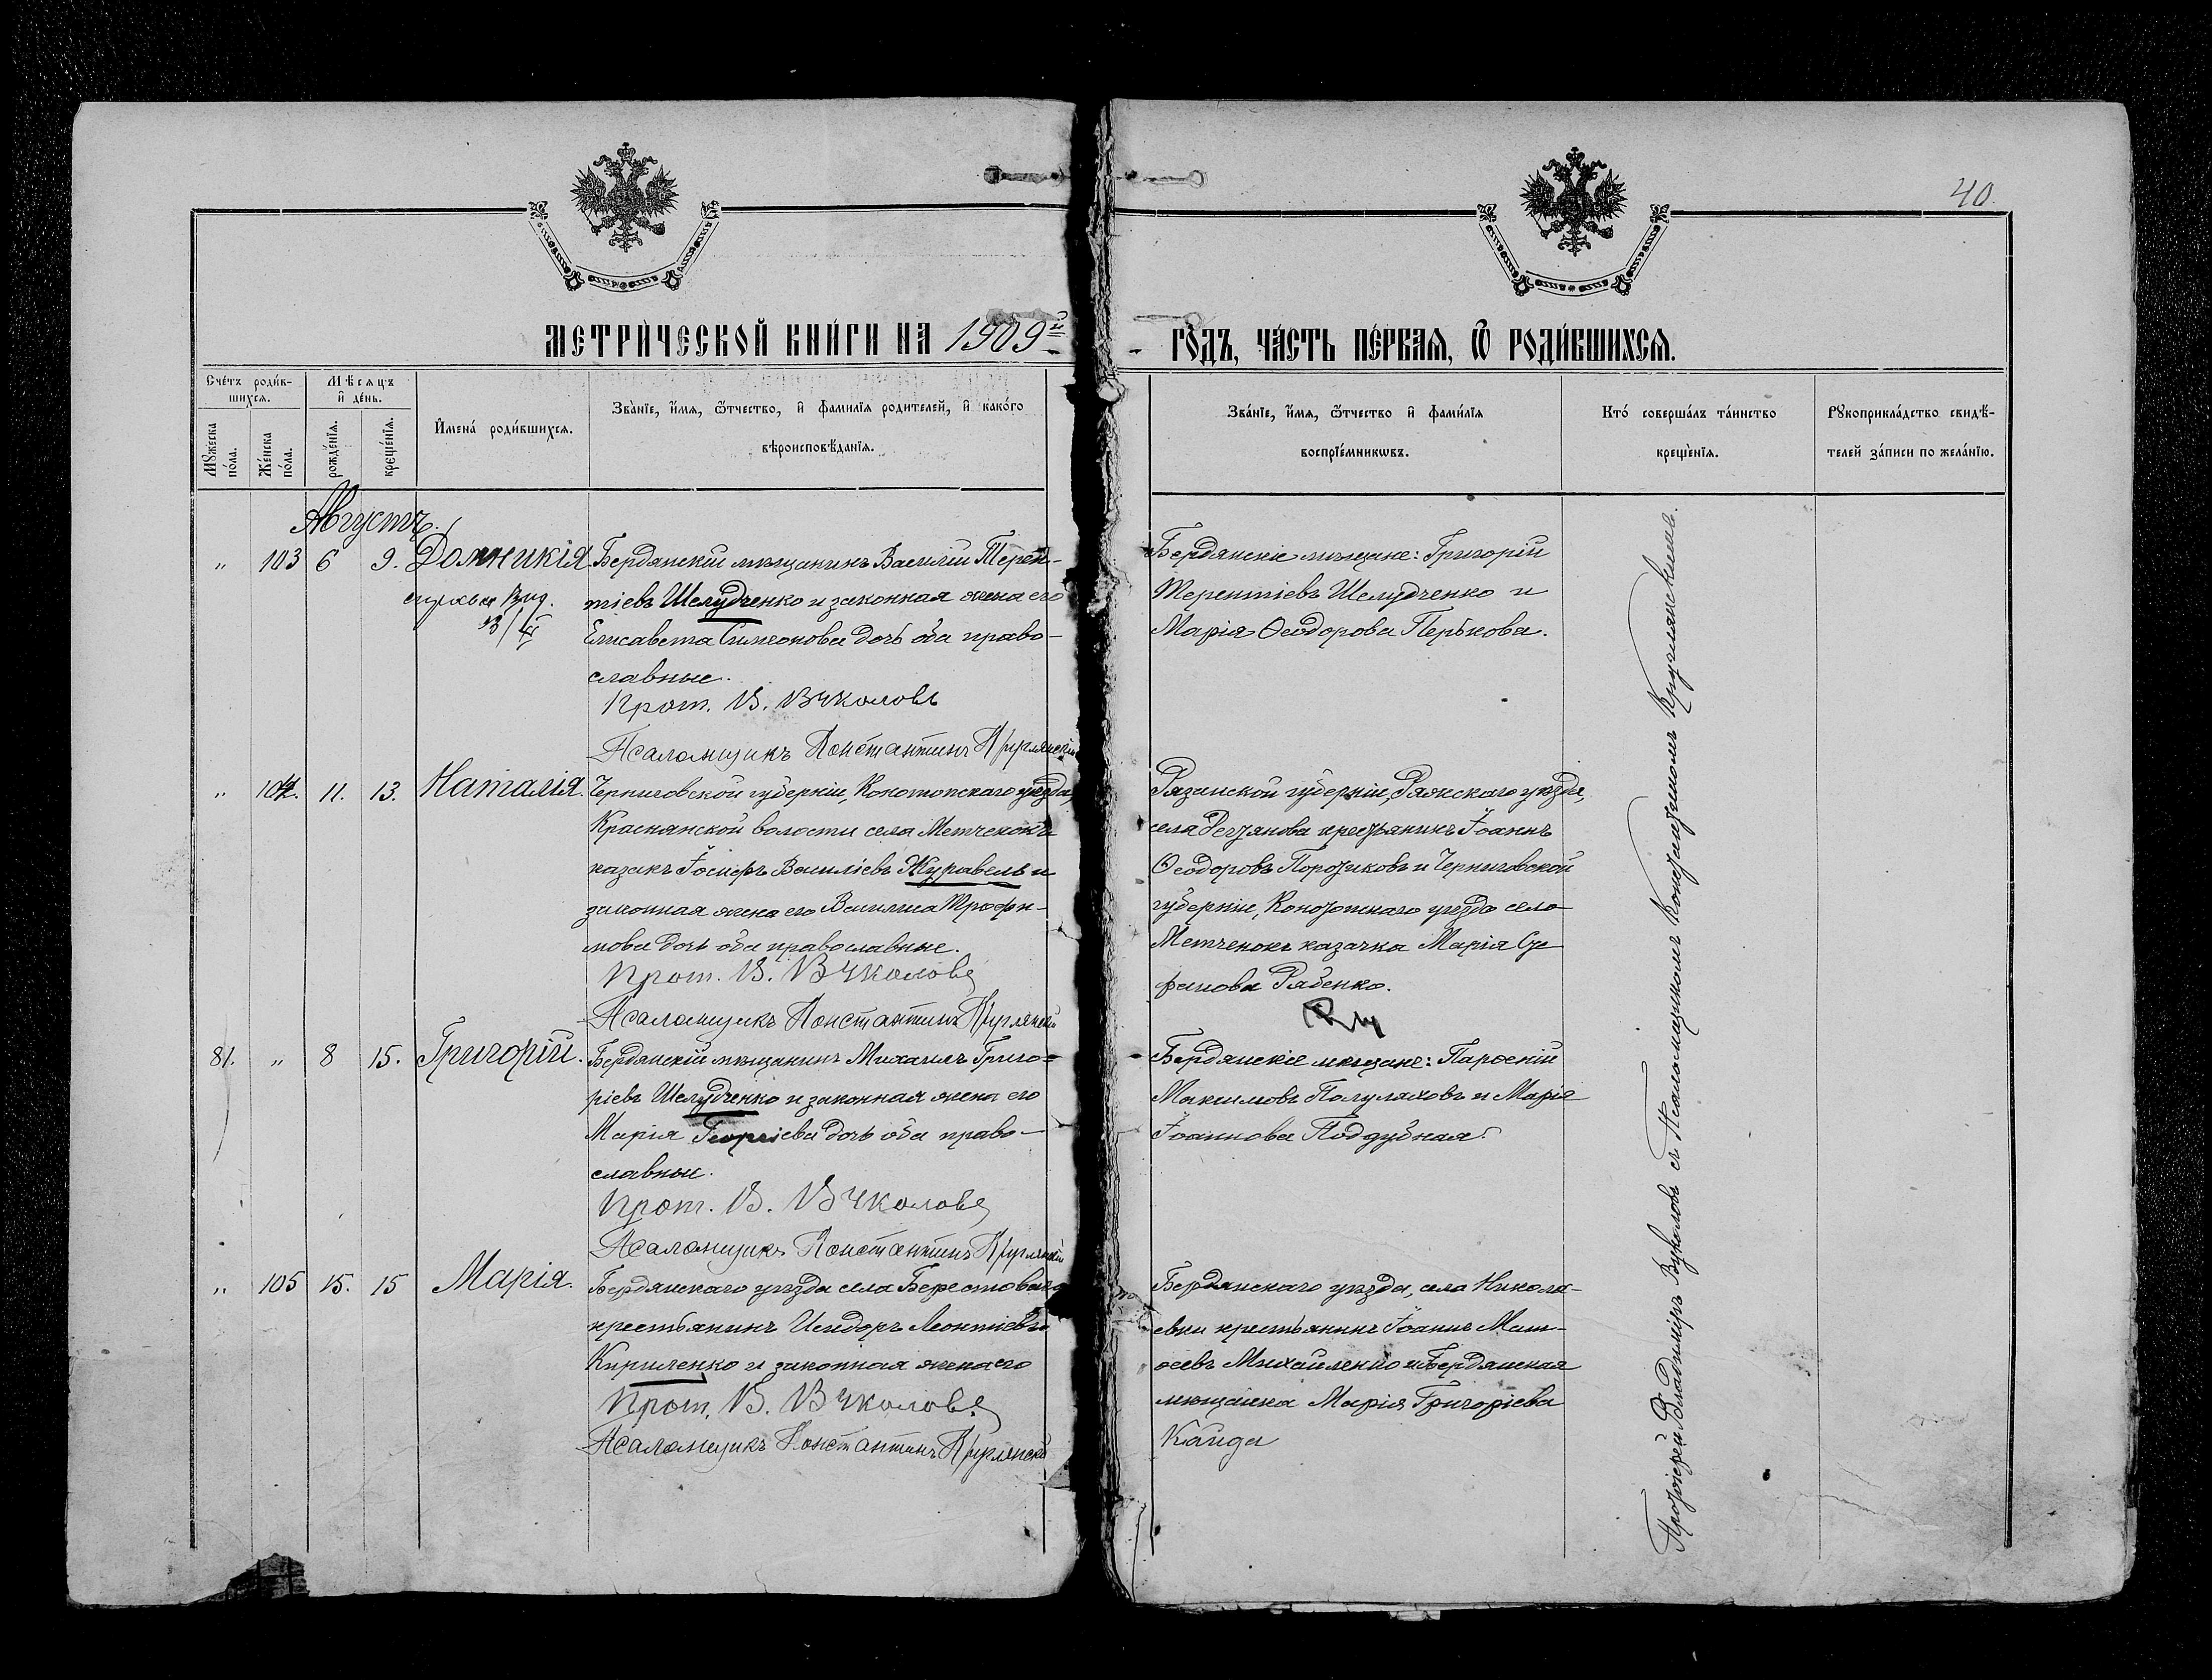 40.
МЕТРИ́ЧЕСКОЙ КНИ́ГИ НА 1909й
ГО́ДЪ, ЧА́СТЬ ПЕ́РВАЯ, Ѿ РОДИ́ВШИХСЯ.
Сче́тъ роди́в-
шихся.
Мꙋжеска по́ла.
Же́нска по́ла.
Мѣсяцъ
и҆ де́нь.
рожде́нїя.
креще́нїя.
И҆мена́ роди́вшихся.
Зва́нїе, и҆́мя, ѻ҆́тчество, и҆ фамилїя родителей, и҆ како́го
вѣроисповѣ́данїя.
Зва́нїе, и҆́мя, ѻ҆́тчество и҆ фами́лїя
воспрїе́мникѡвъ.
Кто́ соверша́лъ та́инство
креще́нїя.
Рꙋкоприкла́дство свидѣ́-
телей за́писи по жела́нїю.
Августъ.
" 103 6 9. Домникія
Бердянскій мѣщанинъ Василій Терен-
тіевъ Шелудченко и законная жена его
Елисавета Симеонова дочь оба право-
славные.
Прот. В. Вуколовъ
Псаломщикъ Константинъ Круглянскій
Бердянскіе мѣщане: Григорій
Терентіевъ Шелудченко и
Марія Ѳеодорова Перькова.
" 104. 11. 13. Наталія.
Черниговской губерніи, Конотопскаго уѣзда,
Краснянской волости села Метченокъ
казакъ Іосифъ Василіевъ Журавель и
законная жена его Василиса Трофи-
мова дочь оба православные.
Прот. В. Вуколовъ
Псаломщикъ Константинъ Круглянскій
Рязанской губерніи, Ряжскаго уѣзда,
села крестьянинъ Іоаннъ
Ѳеодоровъ и Черниговской
губерніи, Конотопскаго уѣзда село
Метченокъ казачка Марія Сте
фанова Рябенко.
81. " 8 15. Григорій.
Бердянскій мѣщанинъ Михаилъ Григо-
ріевъ Шелудченко и законная жена его
Марія Георгіева дочь оба право-
славные.
Прот. В. Вуколовъ
Псаломщикъ Константинъ Круглянскій
Бердянскіе мѣщане: Парѳеній
Максимовъ Полуляховъ и Марія
Іоаннова Поддубная.
" 105 15. 15 Марія.
Бердянскаго уѣзда села Берестоваго
крестьянинъ Исидоръ Леонтіевъ
Кириленко и законная жена его
Прот. В. Вуколовъ
Псаломщикъ Константинъ Круглянскій
Бердянскаго уѣзда, села Никола-
евки крестьянинъ Іоаннъ Мат-
ѳеевъ Михайленко и Бердянская
мѣщанка Марія Григоріева
Кайда
Протоіерей Владиміръ Вуколовъ съ Псаломщикомъ Константиномъ Круглянскимъ.